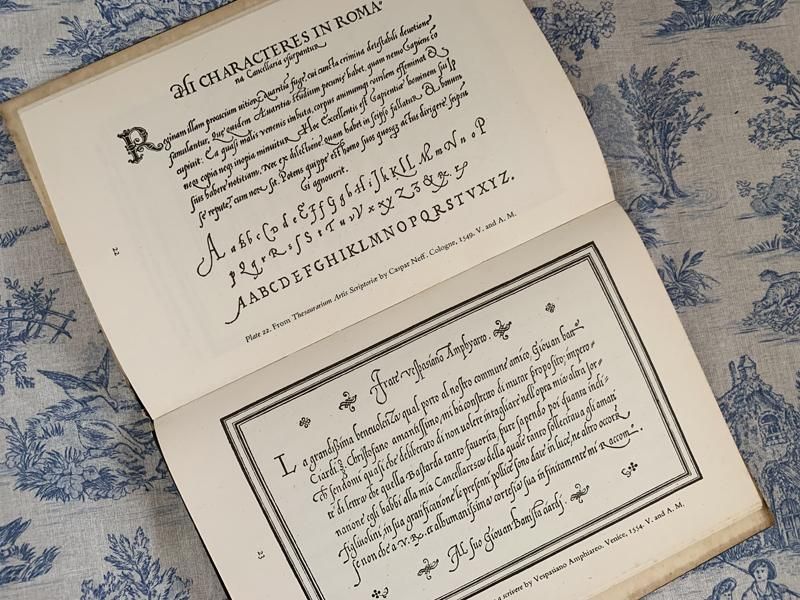 HI CHARACTERES IN ROMA
na Cancellaria usurpantur
Reginam illam procacium vitiorum Avaritiã fuge, cui cuncta crimina detestabili devotione
famulantur, Que eiusdem Avaritia studium pecuniæ habet, quam nemo Sapiens co
cupivit: Ea quasi malis venenis imbuta, corpus animumq virilem effeminat &
neq copia neq inopia minuitur. Hoc Excellentis est Sapientiæ hominem sui ip
sius habere notitiam. Nec ex dilectione quam habet in seipso fallatur, & bonum
se reputet, cum non sit. Potens quippe est homo suos quosq actus dirigere, seipsũ
si agnoverit.
A a b b c C D d e E f f G g b H i J k K l L M m N n o P
p Q q r R s ſ S t T u v V x xy Z 3 & R:
AABCDEFGHIKLMNOPQRSTVXYZ.
22
Plate 22. From Thesaurarium Artis Scriptoriæ by Caspar Neff. Cologne, 1549. V. and A. M.
Frate Vespasiano Amphyareo.
La grandissima benevolenza qual porto al nostro commune amico, Giovan batt
Ciarhi Christofano amantissimo, mi ha constretto di mutar proposito, impero=
ch' sendomi quasi che deliberato di non volere intagliare nell' opra mia altra sor=
te di lettra che quella Bastarda tanto favorita, pure sapendo poi quanta incli=
natione egli habbi alla mia Cancellaresca della quale tanto sollecitava gli amati
figliuolini, in sua gratificatione le presenti pollite sono date in luce, ne altro occorre
se non che a V. R. et all' humanissimo cortesia sua infinitamente mi Raccom.
Al suo Giovan Batista ciarhi.
23
scrivere by Vespasiano Amphiareo. Venice, 1554. V. and A. M.